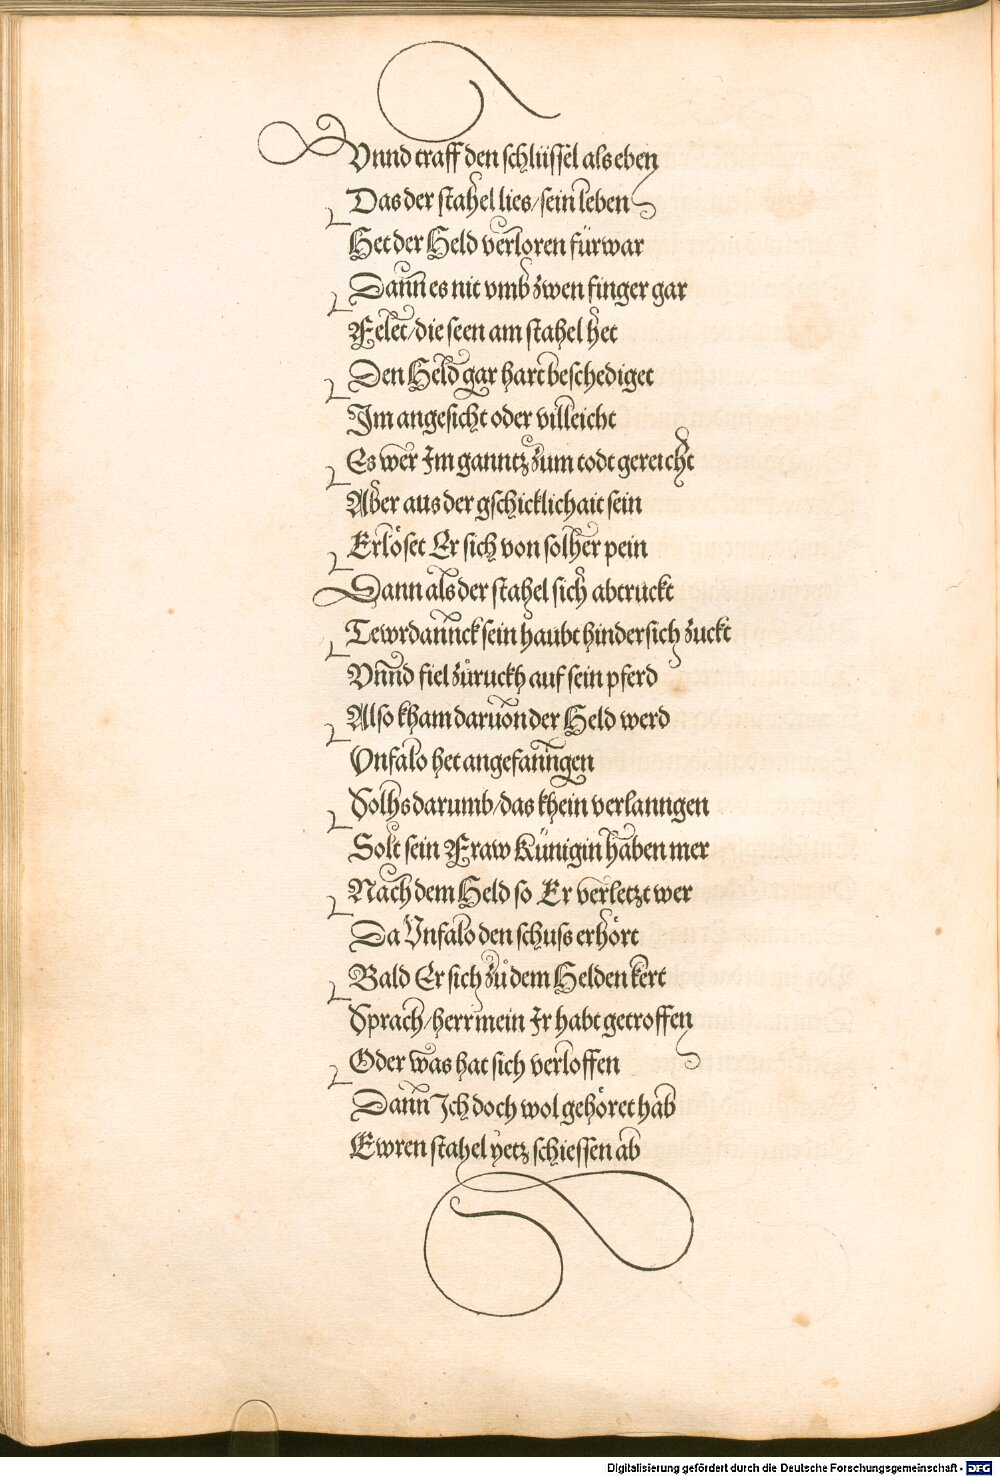 Vnnd traff den schlüssel als eben
Das der stahel lies/sein leben
Het der Held verloren fürwar
Dann es nit vmb zwen finger gar
Felet/die seen am stahel het
Den Held gar hart beschediget
Im angesicht oder villeicht
Es wer Im ganntz zum todt gereicht
Aber aus der gschicklichait sein
Erlöset Er sich von solher pein
Dann als der stahel sich abtruckt
Tewrdannck sein haubt hindersich zuckt
Vnnd fiel zůruckh auf sein pferd
Also kham daruon der Held werd
Vnfalo het angefanngen
Solhs darumb/das khein verlanngen
Solt sein Fraw Künigin haben mer
Nach dem Held so Er verletzt wer
Da Vnfalo den schuss erhört
Bald Er sich zů dem Helden kert
Sprach/herr mein Ir habt getroffen
Oder was hat sich verloffen
Dann Ich doch wol gehöret hab
Ewren stahel yetz schiessen ab
Digitalisierung gefördert durch die Deutsche Forschungsgemeinschaft - DFG